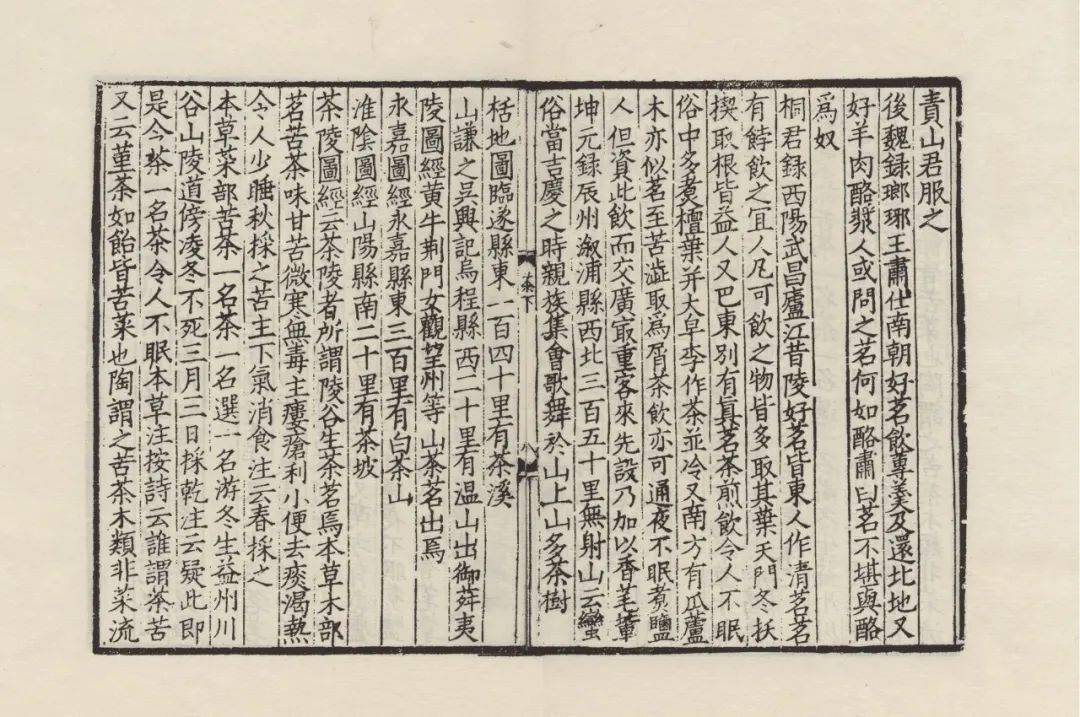 責山君服之
後魏録瑯琊王肅仕南朝好茗飲蓴羹及還北地又
好羊肉酪漿人或問之茗何如酪肅曰茗不堪與酪
爲奴
桐君録西陽武昌廬江昔陵好茗皆東人作清茗茗
有餑飲之冝人凡可飲之物皆多取其葉天門冬拔
揳取根皆益人又巴東別有真茗茶煎飲令人不眠
俗中多煑檀葉并大皁李作茶並冷又南方有瓜蘆
木亦似茗至苦澁取爲屑茶飲亦可通夜不眠煑鹽
人但資此飲而交廣冣重客來先設乃加以香芼軰
坤元録辰州溆浦縣西北三百五十里無射山云蠻
俗當吉慶之時親族集會歌舞於山上山多茶樹
茶下
括地圖臨遂縣東一百四十里有茶溪
山謙之吳興記烏程縣西二十里有温山出御荈夷
陵圖經黄牛荆門女觀望州等山茶茗出焉
永嘉圖經永嘉縣東三百里有白茶山
淮陰圖經山陽縣南二十里有茶坡
茶陵圖經云茶陵者所謂陵谷生茶茗焉本草木部
茗苦茶味甘苦微寒無毒主瘻瘡利小便去痰渴熱
令人少睡秋採之苦主下氣消食注云春採之
本草菜部苦茶一名荼一名選一名游冬生益州川
谷山陵道傍凌冬不死三月三日採乾注云疑此即
是今茶一名荼令人不眠本草注按詩云誰謂荼苦
又云堇荼如飴皆苦菜也陶謂之苦茶木類非菜流